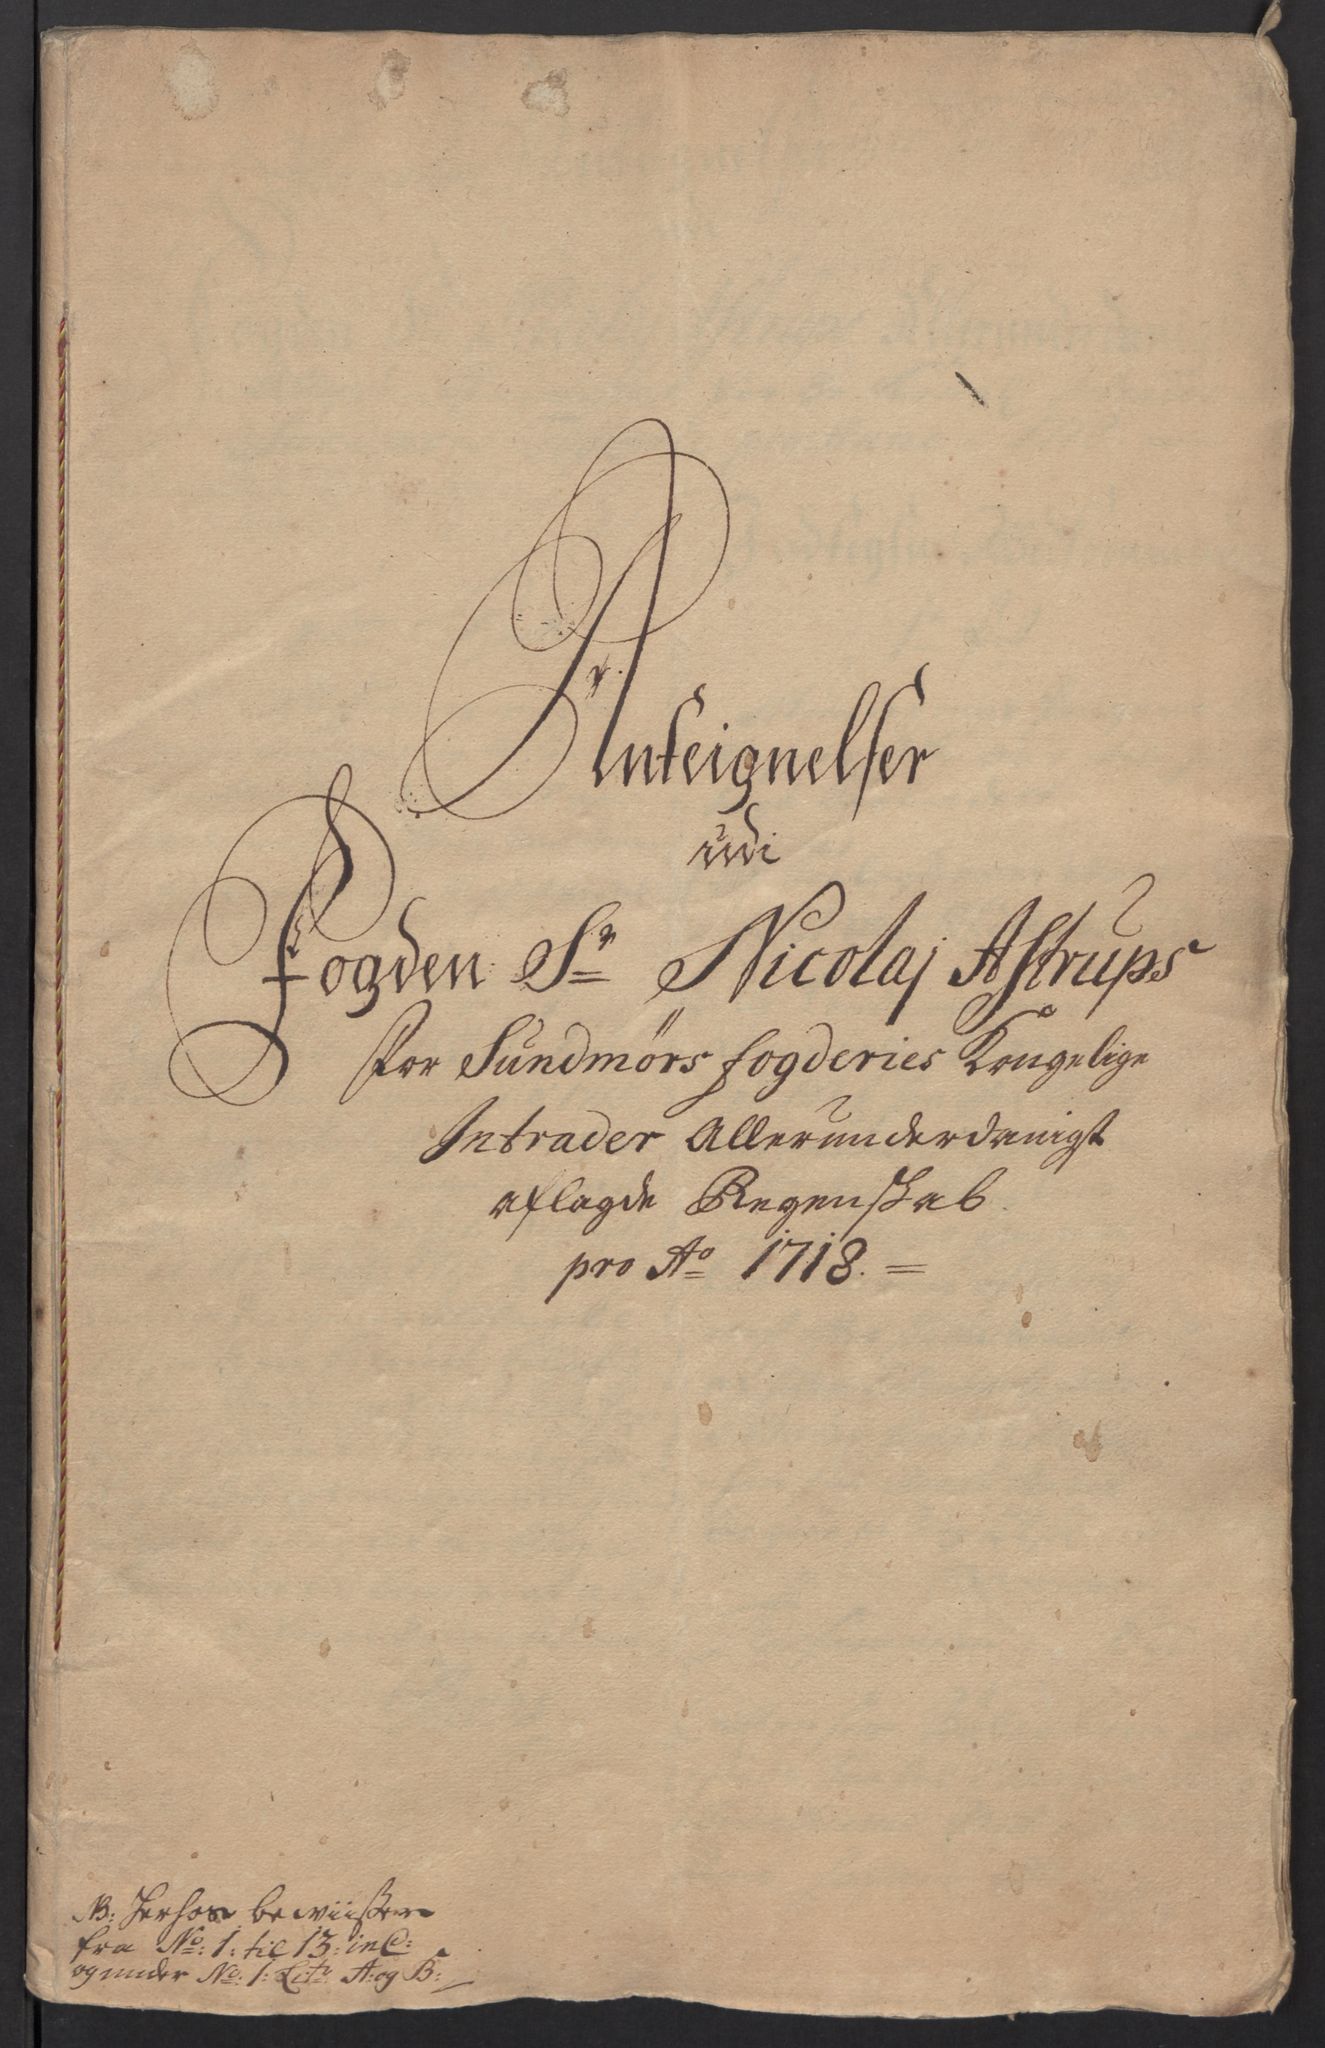 Anteignelser
udi
Fogden Sr Nicolaj Astrups
For Sundmørs fogderies Kongelige
Intrader Allerunderdanigst
aflagde Regenskab
pro Ao 1718. =
NB: Herhos beviisser
fra No: 1: til 13: incl:
og under No: 1: Litr A: og B: